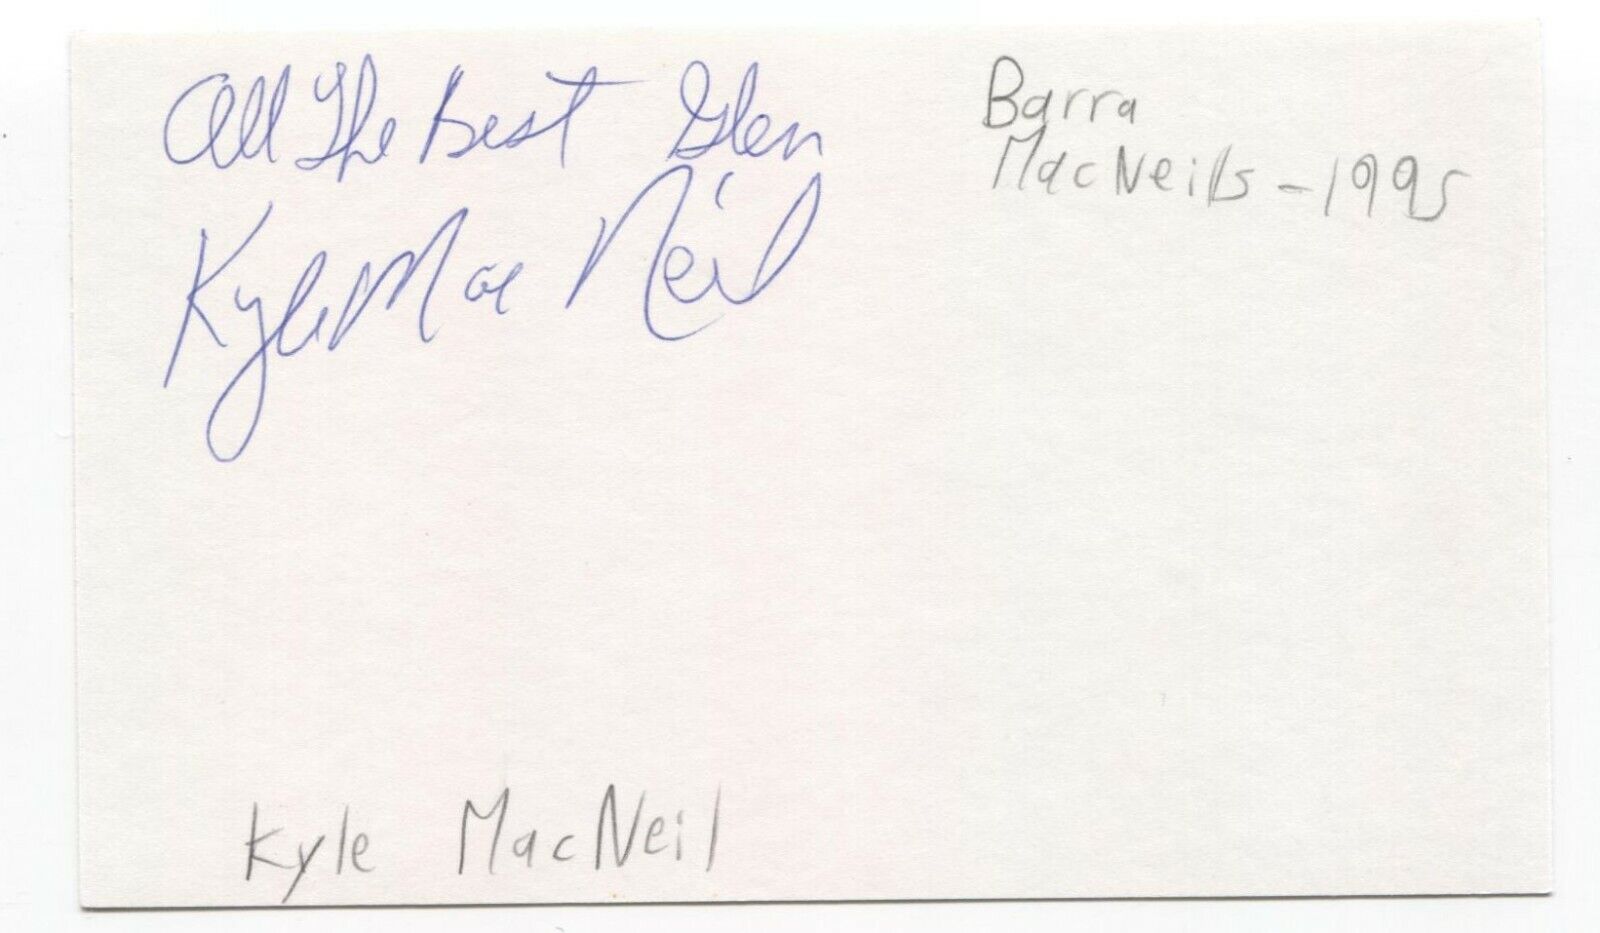 All The Best Glen
Kyle MacNeil
Barra
MacNeils - 1995
Kyle MacNeil